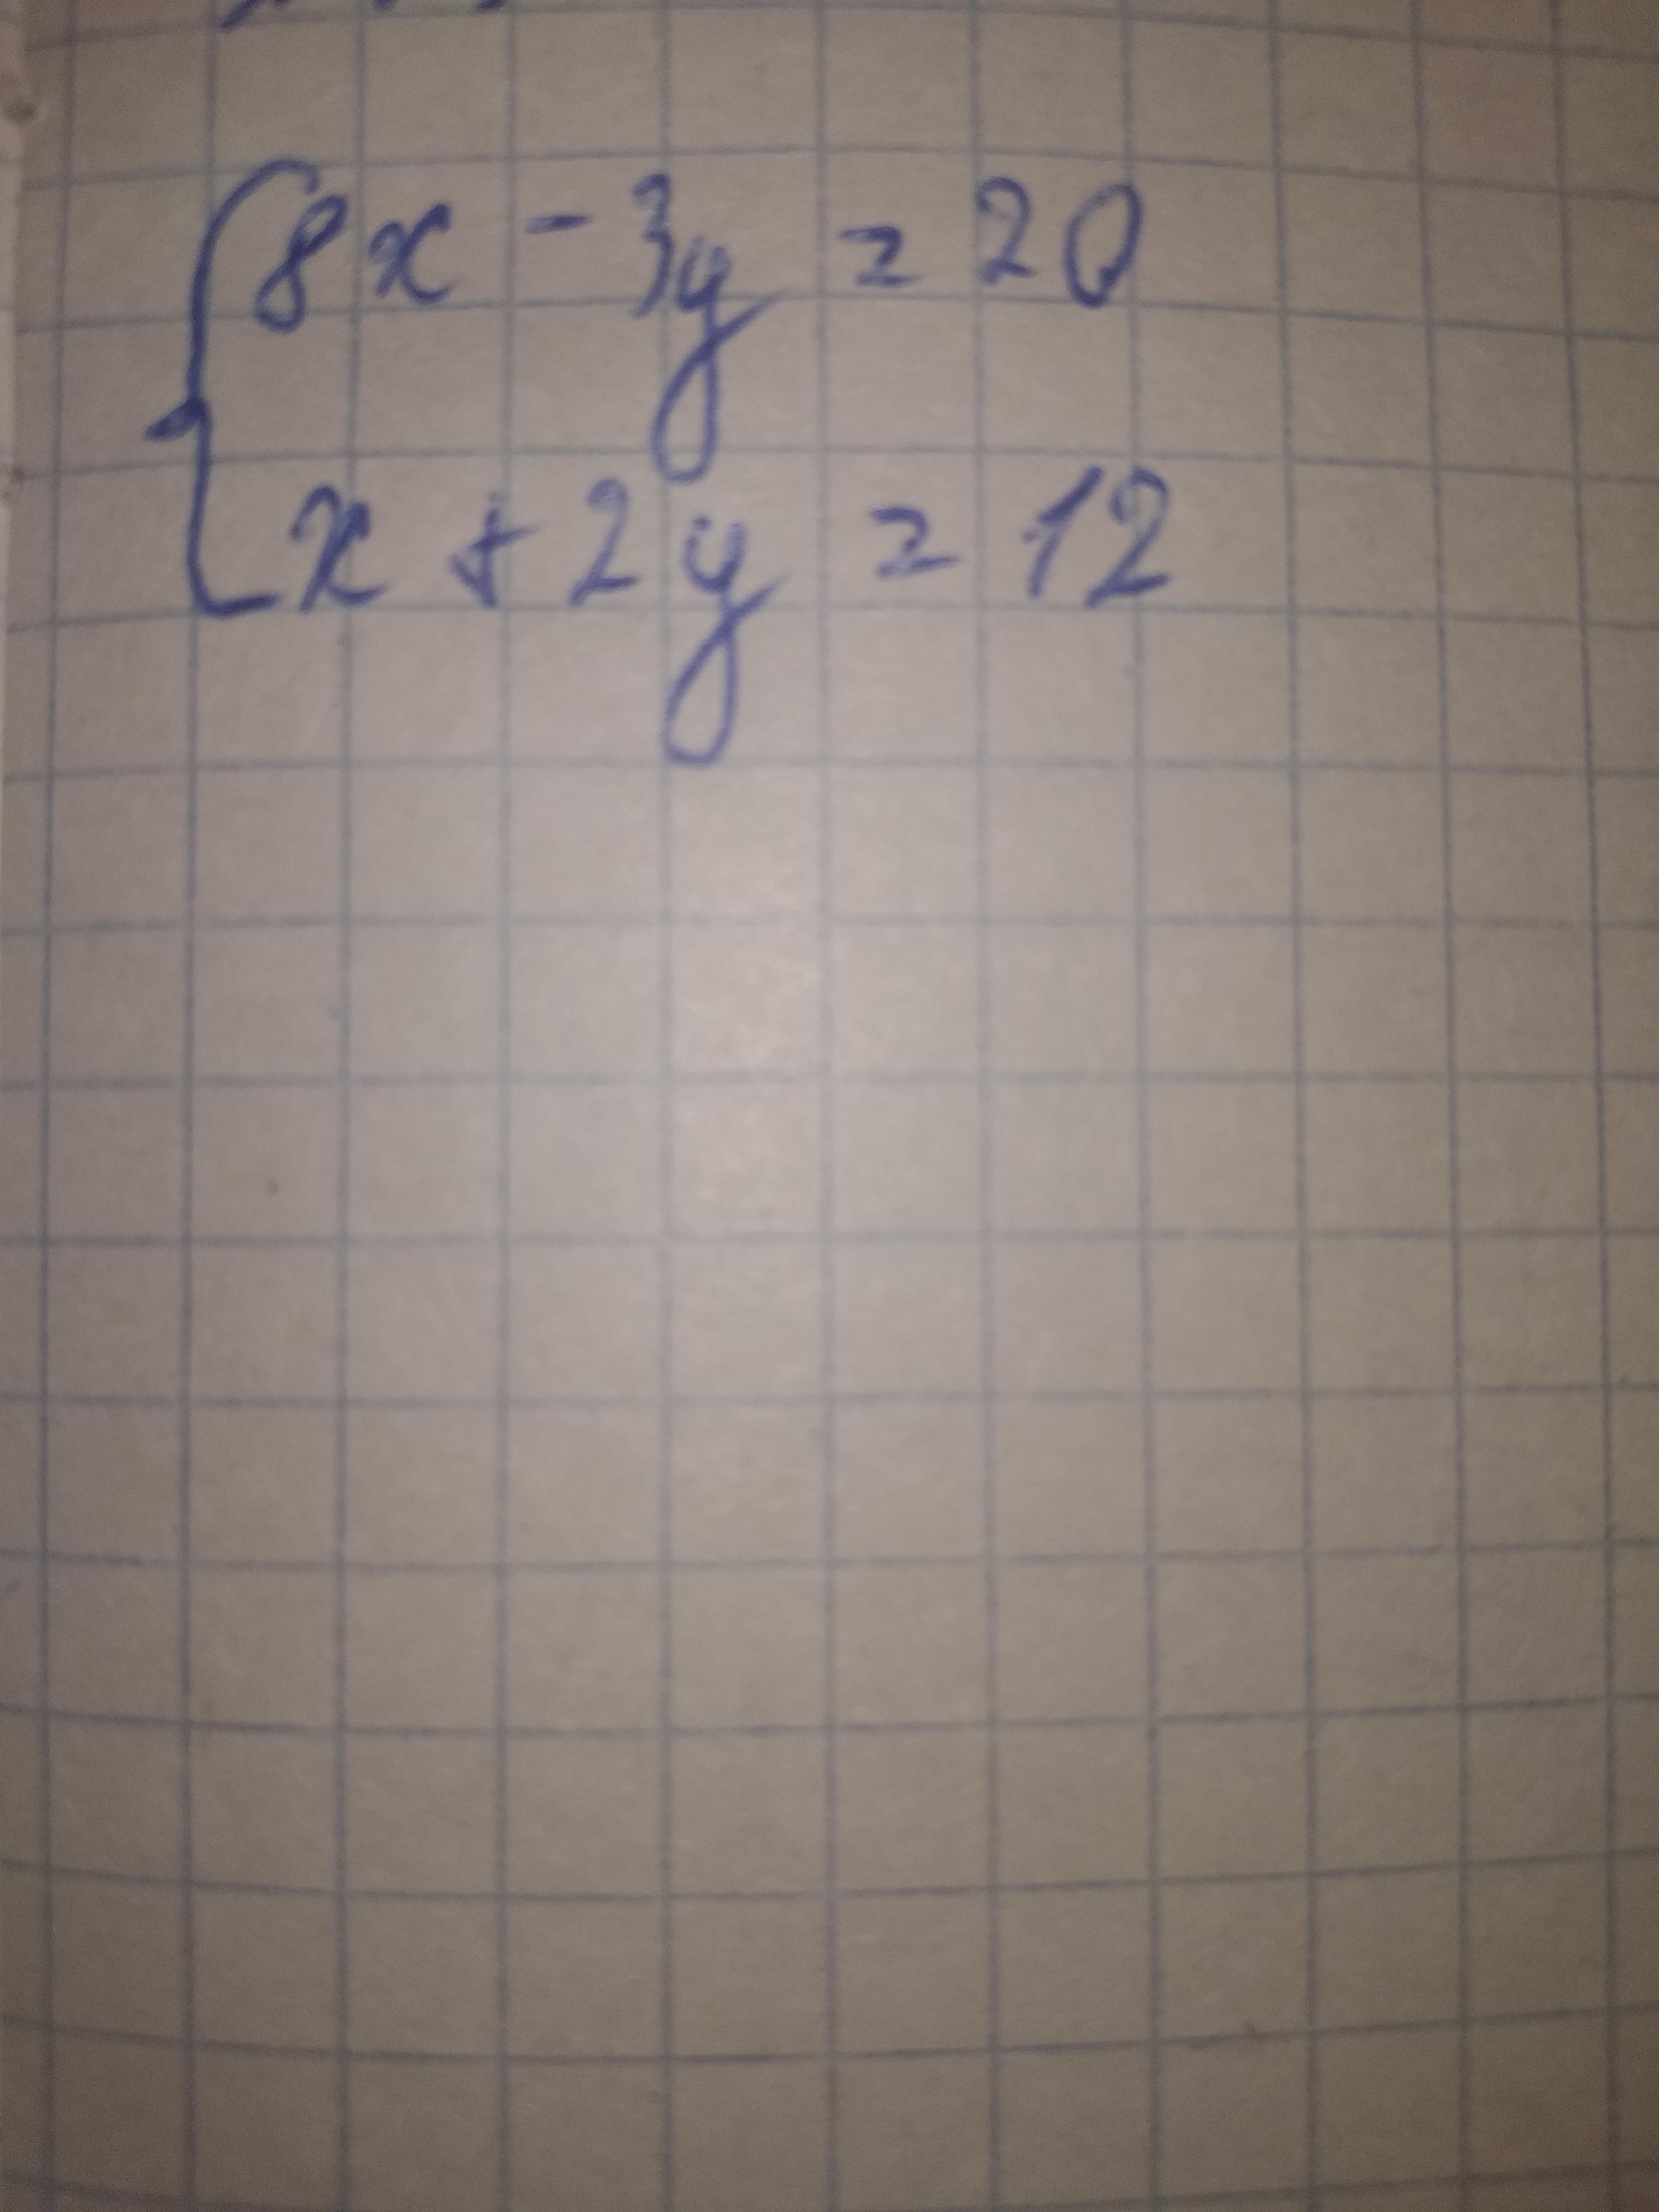 8x - 3y = 20
x + 2y = 12